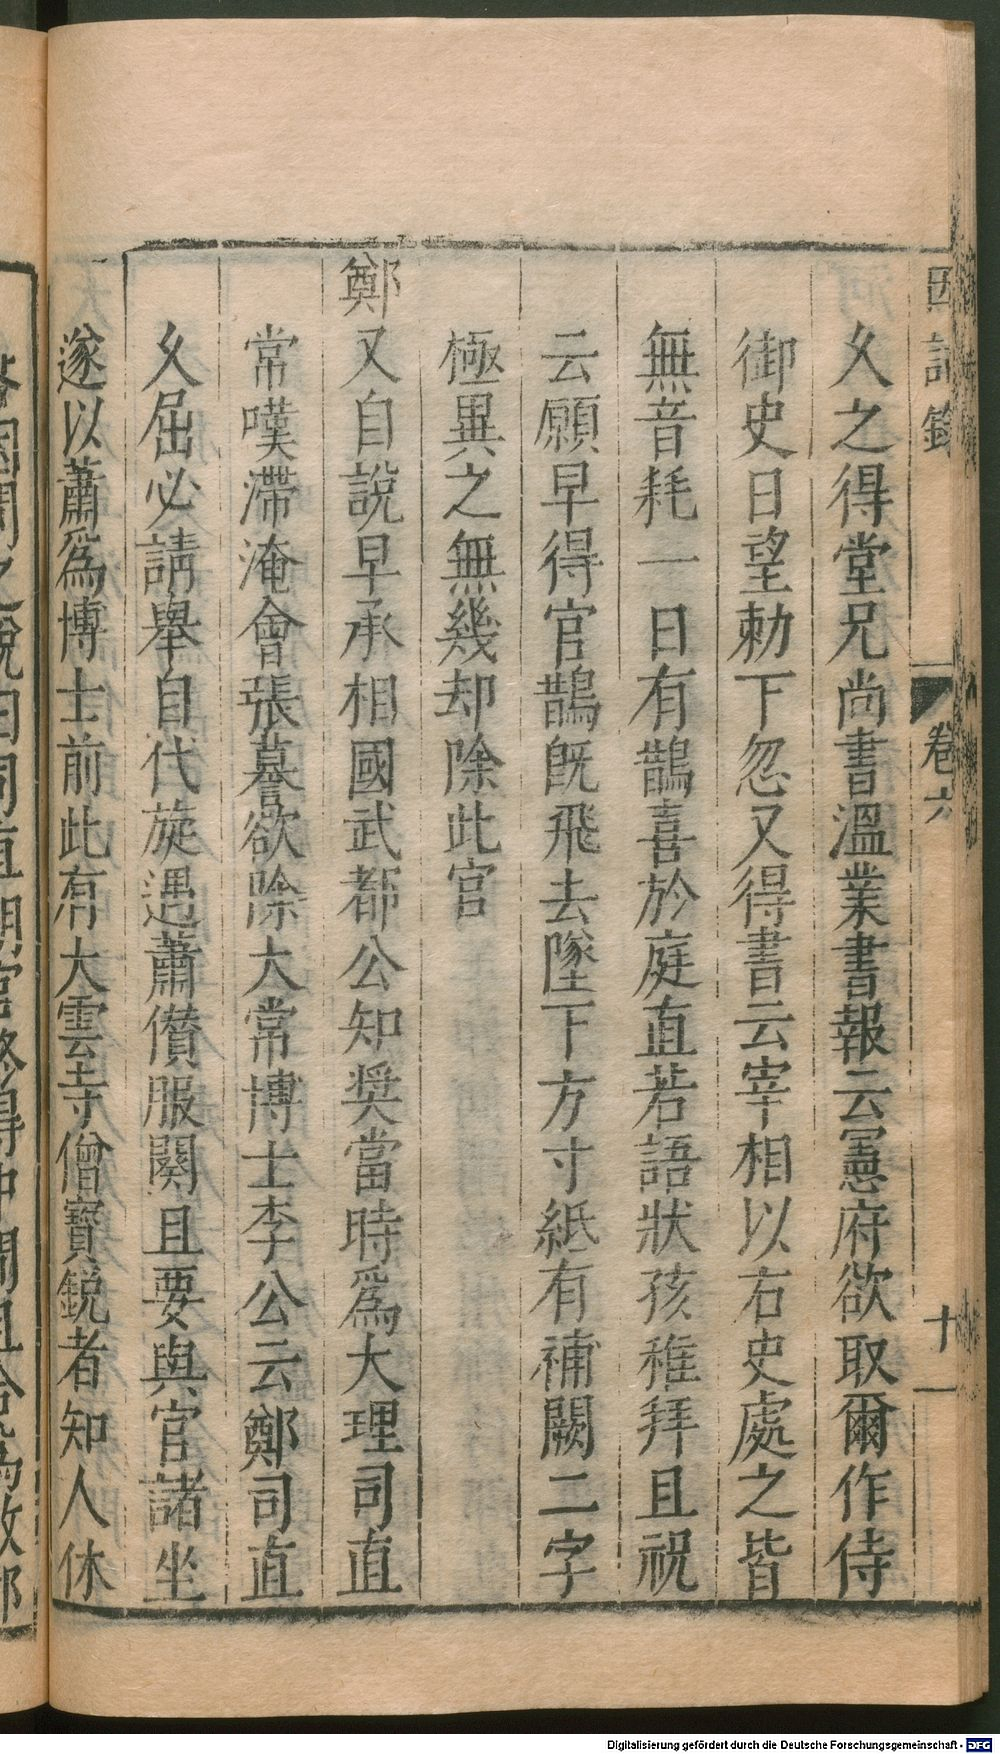 因話錄 卷六 十一
夊之得堂兄尚書溫業書報云憲府欲取爾作侍
御史日望勅下忽又得書云宰相以右史處之皆
無音耗一日有鵲喜於庭直若語狀孩稚拜且祝
云願早得官鵲旣飛去墜下方寸紙有補闕二字
極異之無幾却除此官
鄭又自說早承相國武都公知奬當時爲大理司直
常嘆滯淹會張蕓欲除大常博士李公云鄭司直
夊屈必請舉自代旋遇蕭儧服闋且要與官諸坐
遂以蕭爲博士前此有大雲寺僧寳鋭者知人休
Digitalisierung gefördert durch die Deutsche Forschungsgemeinschaft - DFG